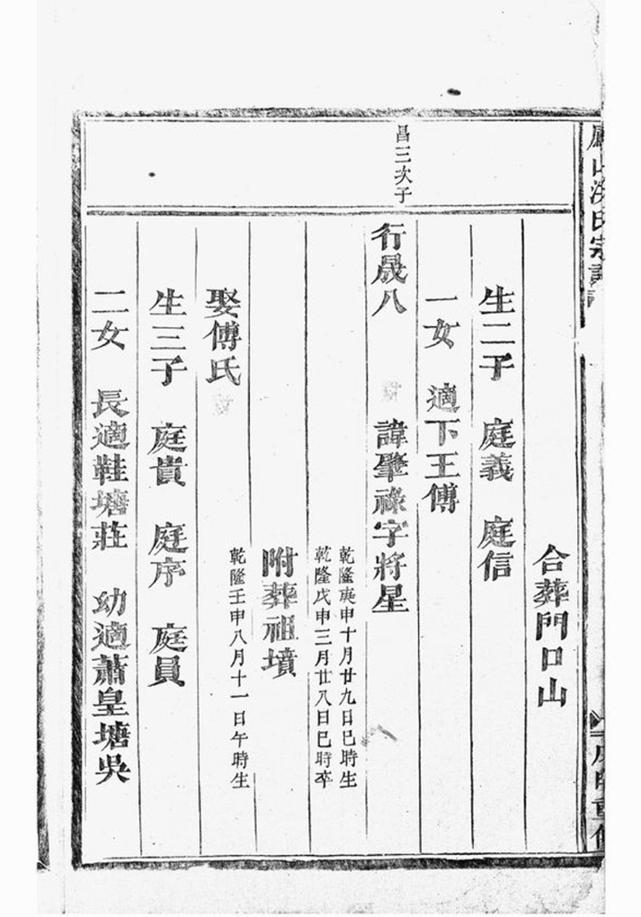 氏宗譜
合葬門口山
生二子 庭義 庭信
一女 適下王傅
昌三次子
行晟八 諱肇祿字將星
乾隆庚申十月廿九日巳時生
乾隆戊申三月廿八日巳時卒
附葬祖墳
娶傅氏 乾隆壬申八月十一日午時生
生三子 庭貴 庭序 庭員
二女 長適鞋塘莊 幼適蕭皇塘吳